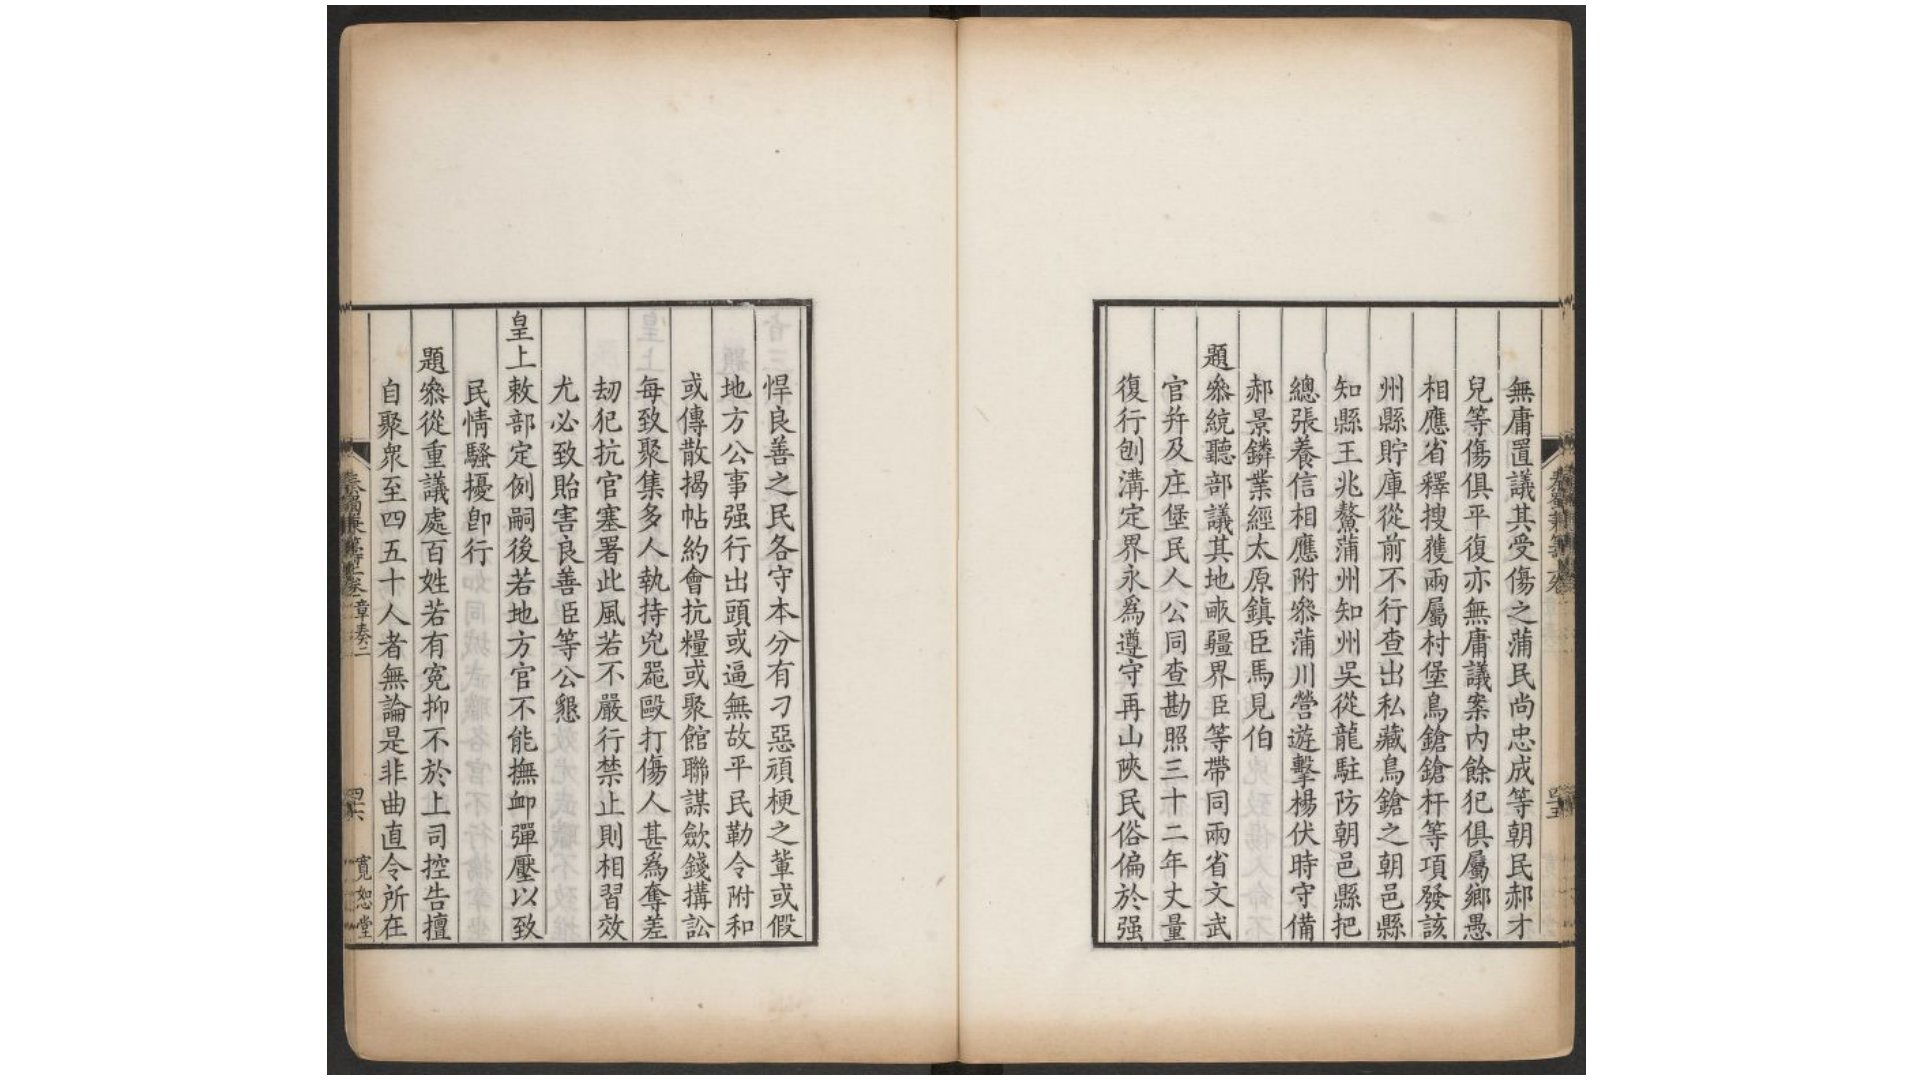 無庸置議其受傷之蒲民尚忠成等朝民郝才
兒等傷俱平復亦無庸議案內餘犯俱屬鄉愚
相應省釋搜獲兩屬村堡鳥鎗鎗杆等項發該
州縣貯庫從前不行查出私藏鳥鎗之朝邑縣
知縣王兆鰲蒲州知州吳從龍駐防朝邑縣把
總張養信相應附叅蒲川營遊擊楊伏時守備
郝景鏻業經太原鎭臣馬見伯
題叅統聽部議其地畞疆界臣等帶同兩省文武
官幷及庄堡民人公同查勘照三十二年丈量
復行刨溝定界永爲遵守再山陜民俗偏於强
悍良善之民各守本分有刁惡頑梗之輩或假
地方公事强行出頭或逼無故平民勒令附和
或傳散揭帖約會抗糧或聚館聯謀歛錢搆訟
每致聚集多人執持兇噐毆打傷人甚爲奪差
刼犯抗官塞署此風若不嚴行禁止則相習效
尤必致貽害良善臣等公懇
皇上敕部定例嗣後若地方官不能撫䘏彈壓以致
民情騷擾卽行
題叅從重議處百姓若有寃抑不於上司控告擅
自聚衆至四五十人者無論是非曲直令所在
章奏二
四六
寬恕堂